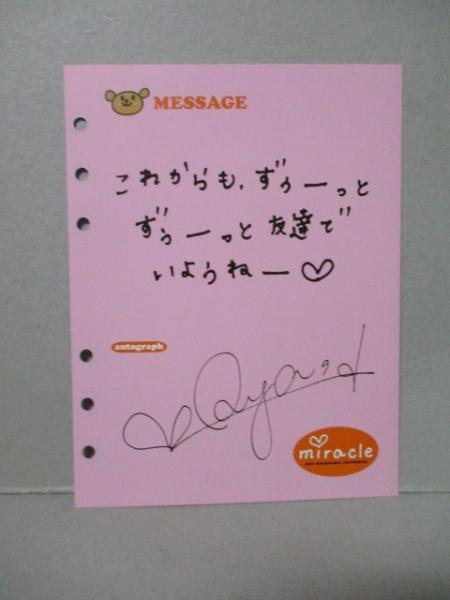 MESSAGE
これからも、ずぅーっと
ずぅーっと友達で
いようねー♡
autograph
miracle